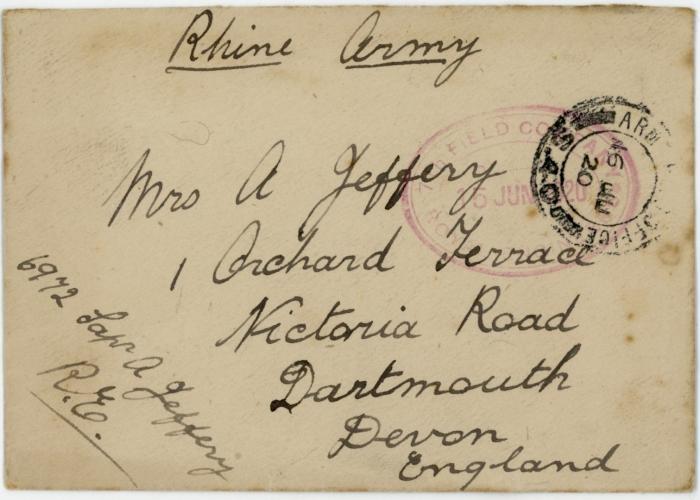 Rhine Army
Mrs A Jeffery
1 Orchard Terrace
Victoria Road
Dartmouth
Devon
England
6972 Sapr A Jeffery
R.E.
FIELD
15 JUN 20
ARMY OFFICE
S.40
16 JU
20